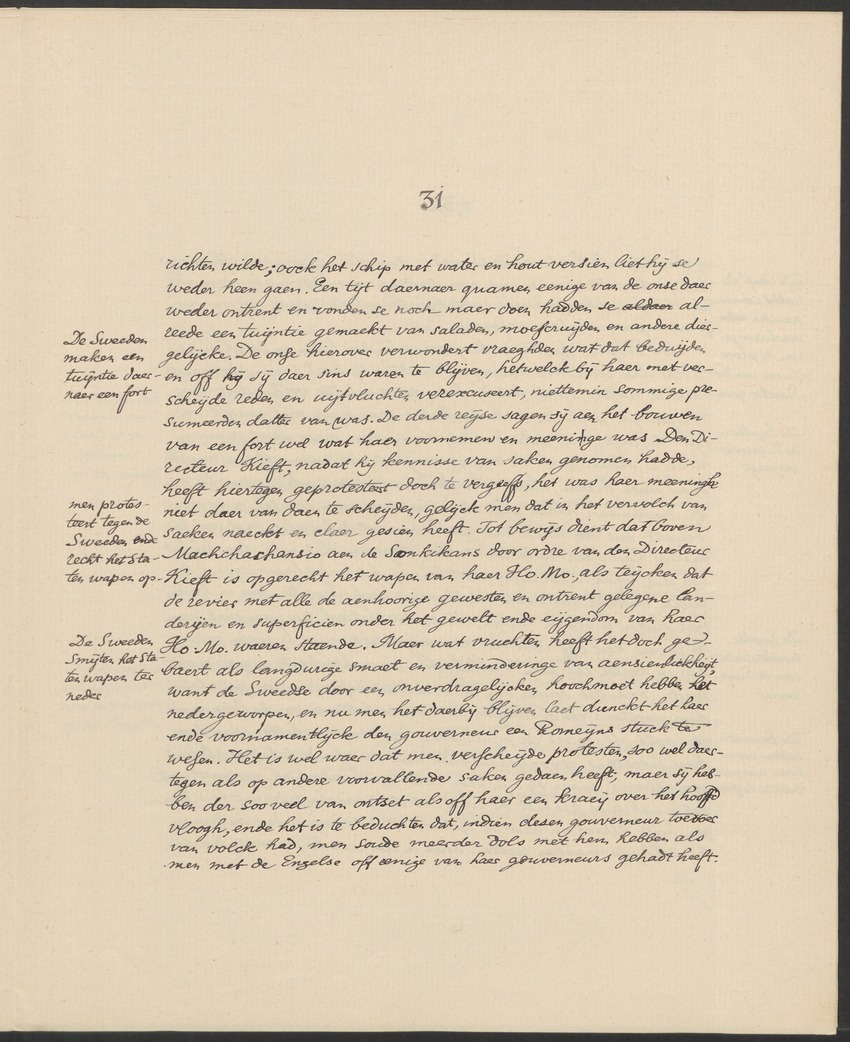 31
richten wilde; oock het schip met water en hout versien liet hij se
weder heen gaen. Een tijt daernaer quamen eenige van de onse daer
weder ontrent en vonden se noch maer doen hadden se aldaer al-
reede een tuijntie gemaekt van saladen, moescruijden en andere dier-
gelijcke. De onse hierover verwondert vraeghden wat dat beduijden
en off hij sij daer sins waren te blijven, hetwelck bij haer met ver-
scheijde reden en uijtvluchten verexcuseert, niettemin sommige pre-
sumeerden datter van was. De derde reijse sagen sij aen het bouwen
van een fort wel wat haer voornemen en meeninge was. Den Di-
recteur Kieft, nadat hij kennisse van saken genomen hadde,
heeft hiertegen geprotesteert doch te vergeeffs, het was haer meeninghe
niet daer van daen te scheijden, gelijck men dat in het vervolch van
saeken naeckt en claer gesien heeft. Tot bewijs dient dat boven
Machchachansio aen de Sankikans door ordre van den Directeur
Kieft is opgerecht het wapen van haer Ho. Mo., als teijcken dat
de revier met alle de aenhoorige gewesten en ontrent gelegene lan-
derijen en superficien onder het gewelt ende eijgendom van haer
Ho. Mo. waeren staende. Maer wat vruchten heeft het doch ge-
baert als langdurige smaet en verminderinge van aensienlickheijt,
want de Sweedse door een onverdragelijcken hoochmoet hebben het
nedergeworpen, en nu men het daerbij blijven laet dunckt het haer
ende voornamentlijck den gouverneur een Romeijns stuck te
wesen. Het is wel waer dat men verscheijde protesten, soo wel daer-
tegen als op andere voorvallende saken gedaen heeft, maer sij heb-
ben der soo veel van ontset als off haer een kraeij over het hooft
vloogh, ende het is te beduchten dat, indien desen gouverneur toevoer
van volck had, men soude meerder dols met hem hebben als
men met de Engelse off eenige van haer gouverneurs gehadt heeft.
De Sweeden
maken een
tuijntie daer-
naer een fort
men protes-
teert tegen de
Sweeden ende
recht het Sta-
ten wapen op.
De Sweeden
smijten het Sta-
ten wapen ter
neder